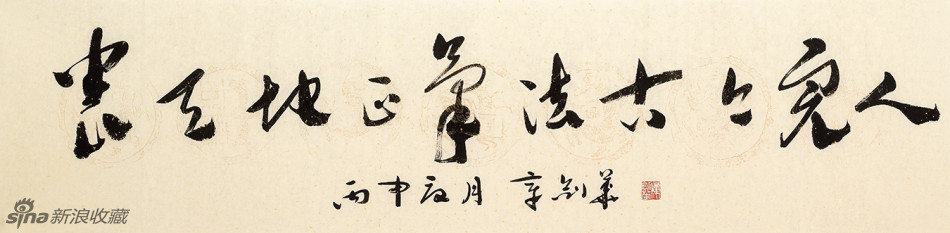 養天地正氣法古今完人
丙申夏月 章剑華
sina新浪收藏